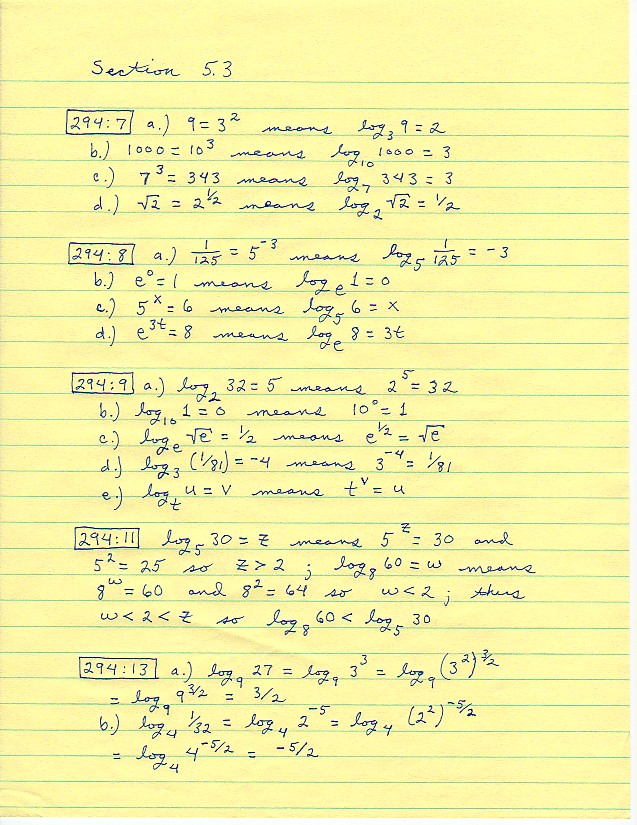 Section 5.3
294:7 a.) 9 = 3² means log₃ 9 = 2
b.) 1000 = 10³ means log₁₀ 1000 = 3
c.) 7³ = 343 means log₇ 343 = 3
d.) √2 = 2^½ means log₂ √2 = ½
294:8 a.) 1/125 = 5⁻³ means log₅ 1/125 = -3
b.) e⁰ = 1 means logₑ 1 = 0
c.) 5ˣ = 6 means log₅ 6 = x
d.) e^3t = 8 means logₑ 8 = 3t
294:9 a.) log₂ 32 = 5 means 2⁵ = 32
b.) log₁₀ 1 = 0 means 10⁰ = 1
c.) logₑ √e = ½ means e^½ = √e
d.) log₃ (1/81) = -4 means 3⁻⁴ = 1/81
e.) logₜ u = v means tᵛ = u
294:11 log₅ 30 = z means 5ᶻ = 30 and
5² = 25 so z > 2 ; log₈ 60 = w means
8ʷ = 60 and 8² = 64 so w < 2 ; thus
w < 2 < z so log₈ 60 < log₅ 30
294:13 a.) log₉ 27 = log₉ 3³ = log₉ (3²)^3/2
= log₉ 9^3/2 = 3/2
b.) log₄ 1/32 = log₄ 2⁻⁵ = log₄ (2²)^-5/2
= log₄ 4^-5/2 = -5/2